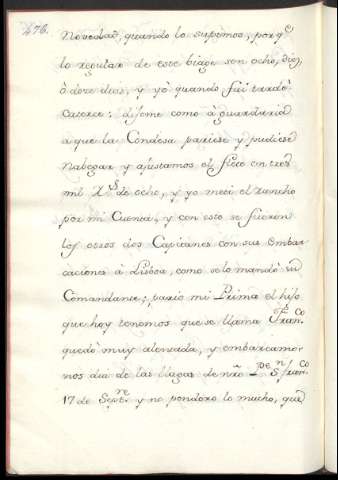 476.
Novedad, quando lo supimos, porq.e
lo regular de este biage son ocho, diez,
ò doze dias, y yò quando fui tardò
catorce: dijome como à guardaria
a que la Condesa pariese y pudiese
Nabegar y ajustamos el flete en tres
mil R.s de ocho, y yo meti el rancho
por mi Cuenta, y con esto se fueron
los otros dos Capitanes con sus embar
caciones à Lisboa, como se lo mandò su
Comandante; pariò mi Prima el hijo
que hoy tenemos que se llama Fran.co
quedò muy alentada, y embarcamo
nos dia de las llagas de nrò P.e S.n Fran.co
17 de Sept.re y no pondero lo mucho, que